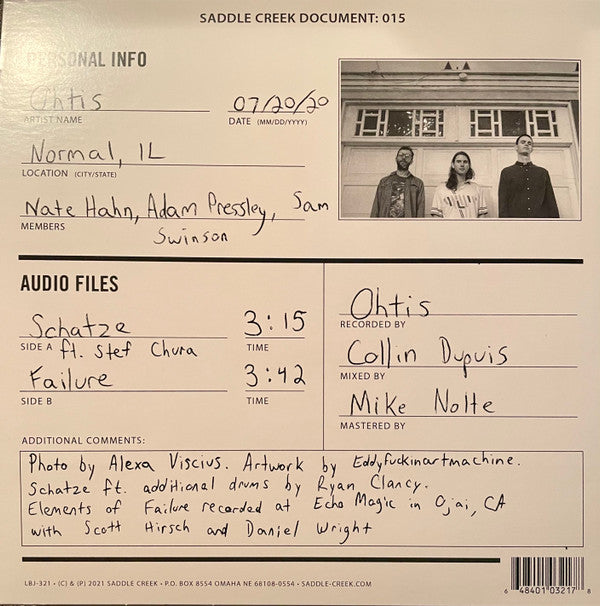 SADDLE CREEK DOCUMENT: 015
PERSONAL INFO
Ohtis
07/20/20
ARTIST NAME
DATE (MM/DD/YYYY)
Normal, IL
LOCATION (CITY/STATE)
Nate Hahn, Adam Pressley, Sam
MEMBERS
Swinson
AUDIO FILES
Schatze
3:15
SIDE A
TIME
ft. Stef Chura
Failure
3:42
SIDE B
TIME
Ohtis
RECORDED BY
Collin Dupuis
MIXED BY
Mike Nolte
MASTERED BY
ADDITIONAL COMMENTS:
Photo by Alexa Viscius. Artwork by Eddyfuckinartmachine.
Schatze ft. additional drums by Ryan Clancy.
Elements of Failure recorded at Echo Magic in Ojai, CA
with Scott Hirsch and Daniel Wright
LBJ-321 • (C) & (P) 2021 SADDLE CREEK • P.O. BOX 8554 OMAHA NE 68108-0554 • SADDLE-CREEK.COM
6 48401 03217 8